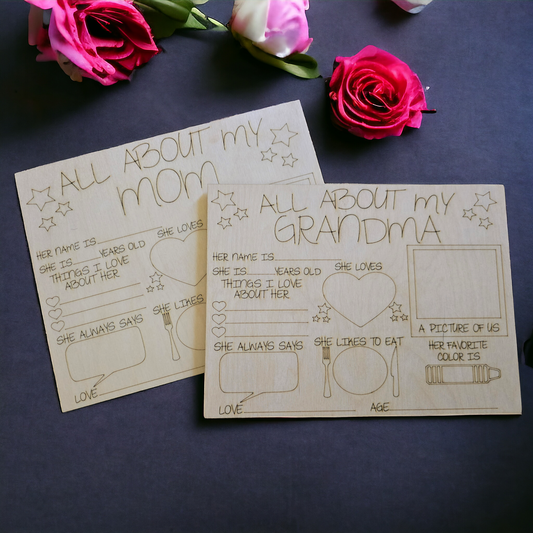 ALL ABOUT MY
MOM
HER NAME IS
SHE IS YEARS OLD
THINGS I LOVE
ABOUT HER
SHE LOVES
SHE ALWAYS SAYS
SHE LIKES
LOVE
ALL ABOUT MY
GRANDMA
HER NAME IS
SHE IS YEARS OLD
THINGS I LOVE
ABOUT HER
SHE LOVES
A PICTURE OF US
SHE ALWAYS SAYS
SHE LIKES TO EAT
HER FAVORITE
COLOR IS
LOVE AGE